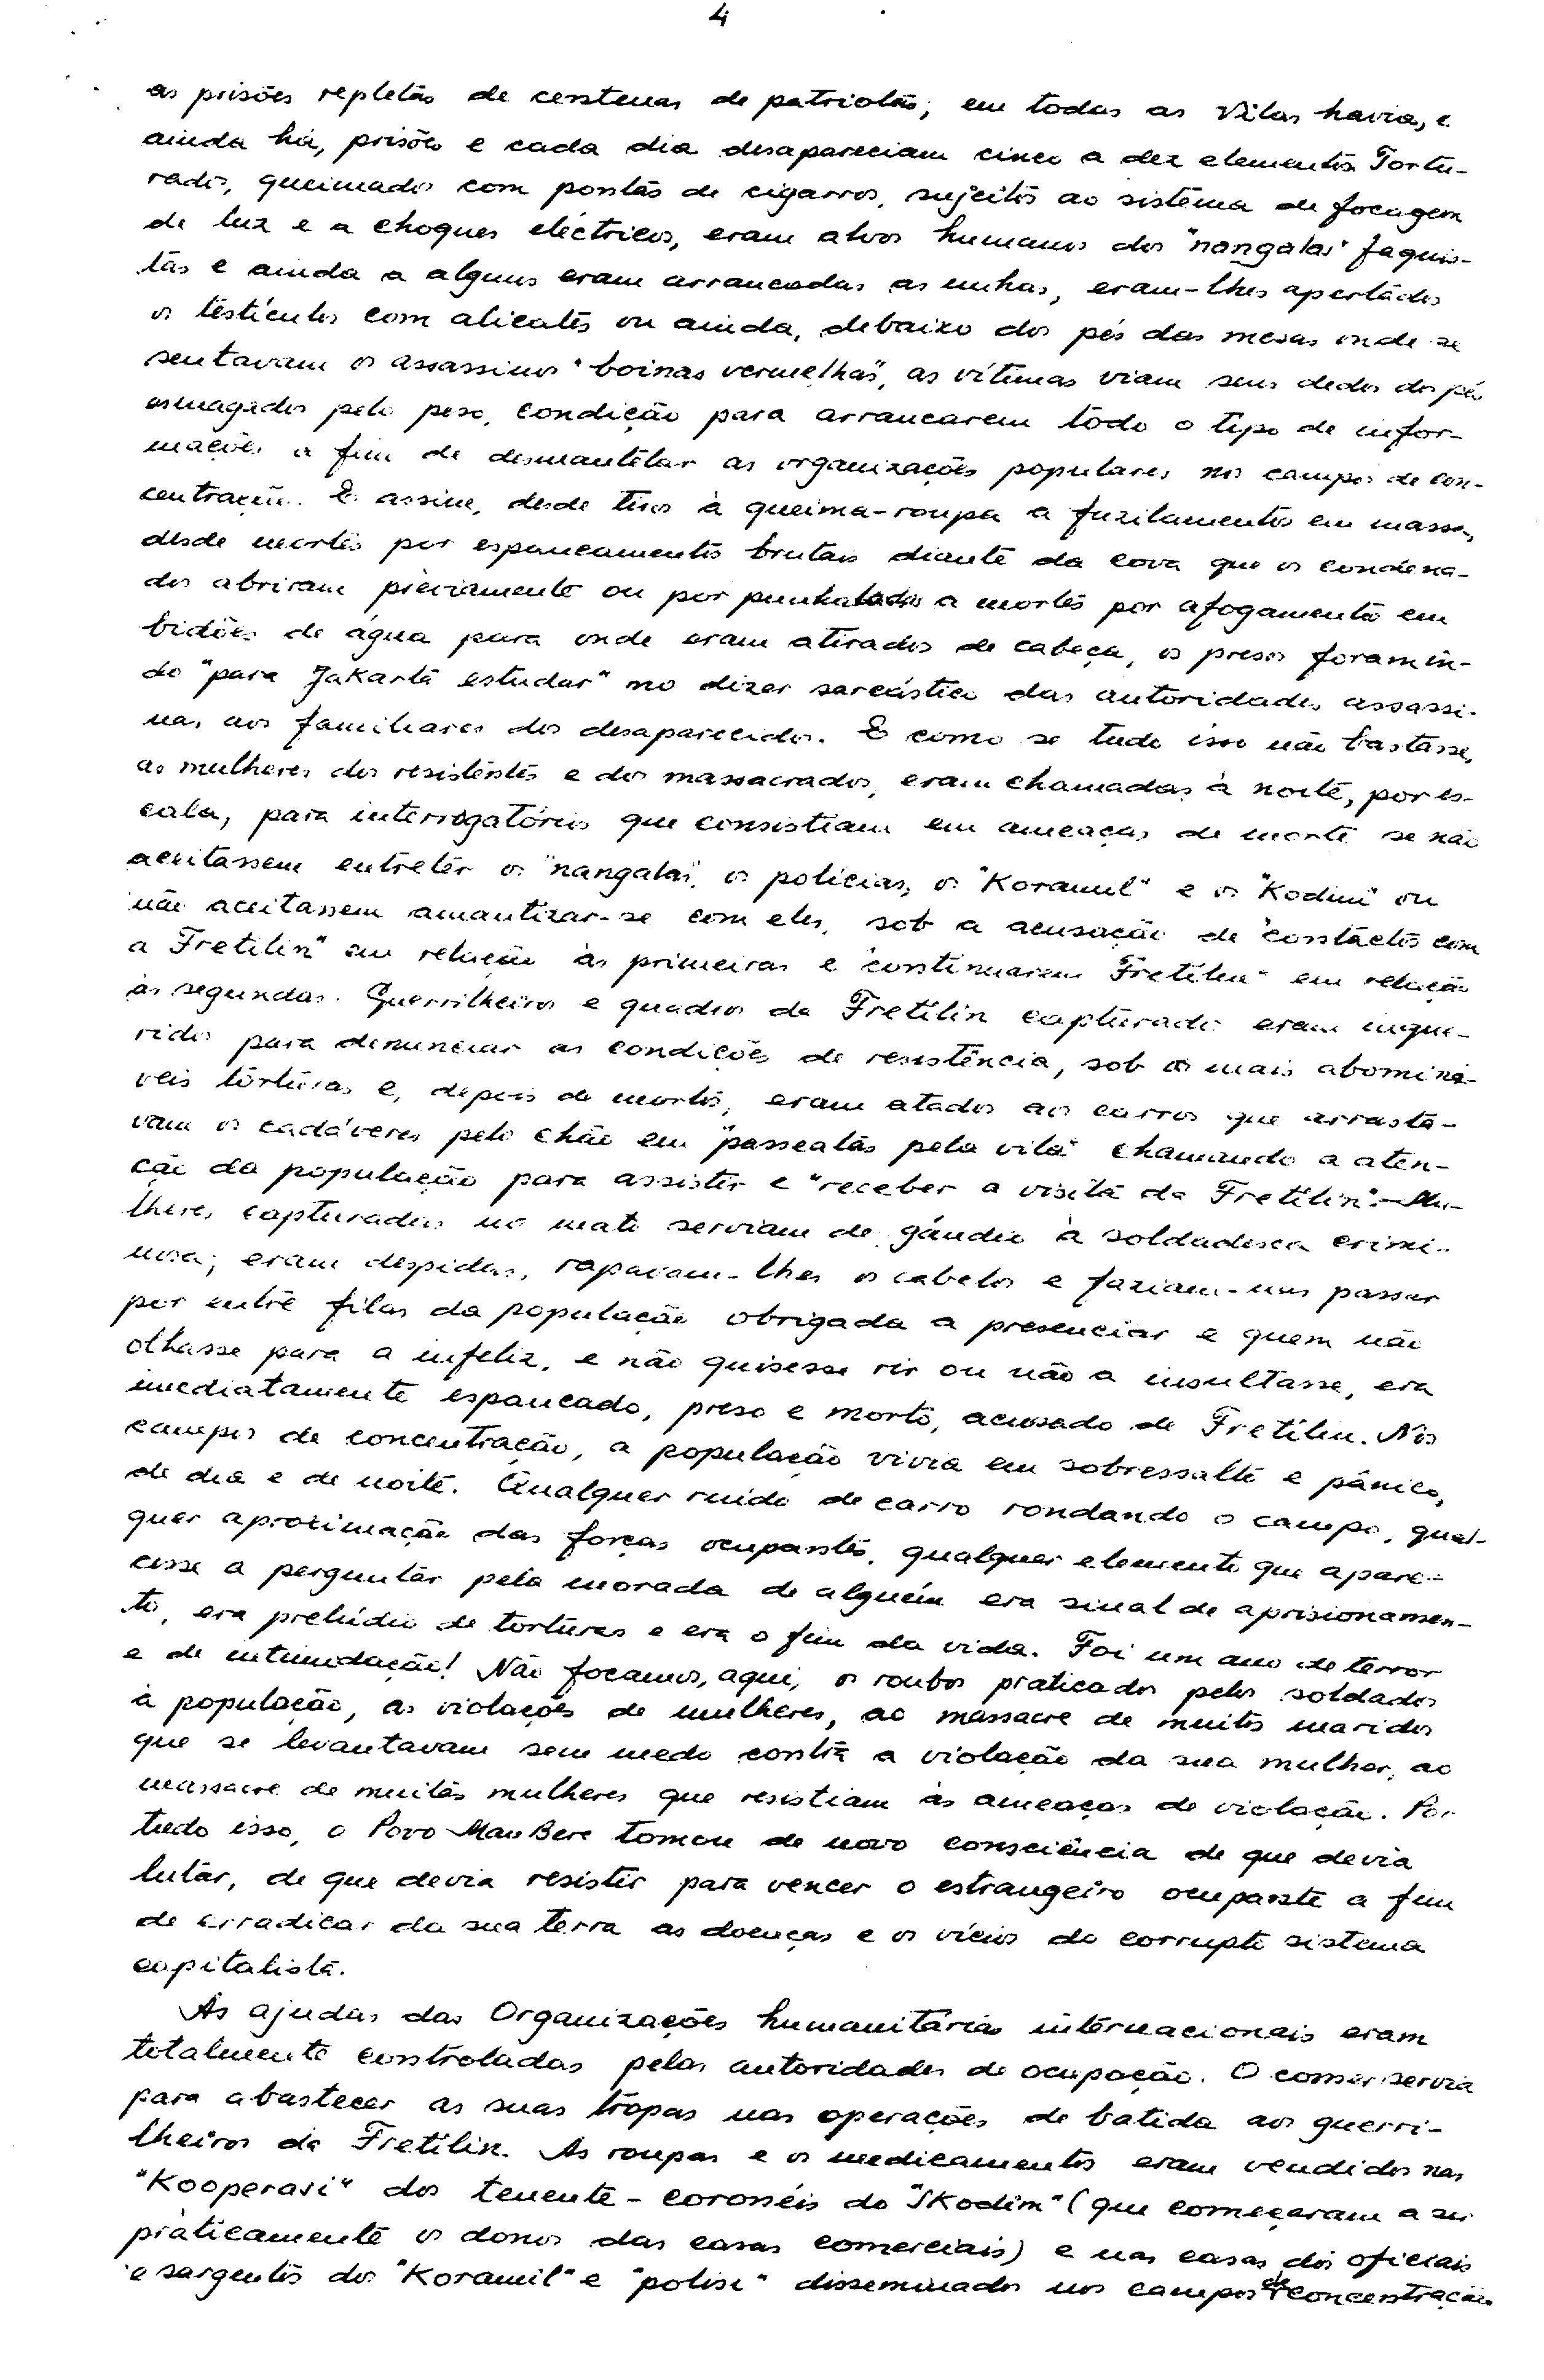 4
as prisões repletas de centenas de patriotas; em todas as Vilas havia, e
ainda há, prisões e cada dia desapareciam cinco a dez elementos. Tortu-
rados, queimados com pontas de cigarros, sujeitos ao sistema de focagem
de luz e a choques eléctricos, eram alvos humanos dos "nangalas" faquis-
tas e ainda a alguns eram arrancadas as unhas, eram-lhes apertados
os testículos com alicates ou ainda, debaixo dos pés das mesas onde se
sentavam os assassinos "boinas vermelhas", as vítimas viam seus dedos dos pés
esmagados pelo peso, condição para arrancarem todo o tipo de infor-
mações a fim de desmantelar as organizações populares nos campos de con-
centração. E assim, desde tiros à queima-roupa a fuzilamentos em massa,
desde mortes por espancamentos brutais diante da cova que os condena-
dos abriram previamente ou por punhaladas a mortes por afogamento em
bidões de água para onde eram atirados de cabeça, os presos foram in-
do "para Jakarta estudar" no dizer sarcástico das autoridades assassi-
nas aos familiares dos desaparecidos. E como se tudo isso não bastasse,
as mulheres dos resistentes e dos massacrados, eram chamadas à noite, por es-
cala, para interrogatórios que consistiam em ameaças de morte se não
aceitassem entreter os "nangalas", os polícias, os "Koramil" e os "Kodim" ou
não aceitassem amantizar-se com eles, sob a acusação de "contactos com
a Fretilin" em relação às primeiras e "continuarem Fretilin" em relação
às segundas. Guerrilheiros e quadros da Fretilin capturados eram inque-
ridos para denunciar as condições de resistência, sob as mais abominá-
veis torturas e, depois de mortos, eram atados aos carros que arrasta-
vam os cadáveres pelo chão em "passeatas pela vila" chamando a aten-
ção da população para assistir e "receber a visita da Fretilin". - Mu-
lheres capturadas no mato serviam de gáudio à soldadesca crimi-
nosa; eram despidas, rapavam-lhes os cabelos e faziam-nas passar
por entre filas da população obrigada a presenciar e quem não
olhasse para a infeliz, e não quisesse rir ou não a insultasse, era
imediatamente espancado, preso e morto, acusado de Fretilin. Nos
campos de concentração, a população vivia em sobressalto e pânico,
de dia e de noite. Qualquer ruído de carro rondando o campo, qual-
quer aproximação das forças ocupantes, qualquer elemento que apare-
cesse a perguntar pela morada de alguém era sinal de aprisionamen-
to, era prelúdio de torturas e era o fim da vida. Foi um ano de terror
e de intimidação! Não focamos, aqui, os roubos praticados pelos soldados
à população, as violações de mulheres, ao massacre de muitos maridos
que se levantavam sem medo contra a violação da sua mulher, ao
massacre de muitas mulheres que resistiam às ameaças de violação. Por
tudo isso, o Povo MauBere tomou de novo consciência de que devia
lutar, de que devia resistir para vencer o estrangeiro ocupante a fim
de erradicar da sua terra as doenças e os vícios do corrupto sistema
capitalista.
As ajudas das Organizações humanitárias internacionais eram
totalmente controladas pelas autoridades de ocupação. O comer servia
para abastecer as suas tropas nas operações de batida aos guerri-
lheiros da Fretilin. As roupas e os medicamentos eram vendidos nas
"Kooperasi" dos tenente-coronéis do "SKodim" (que começaram a ser
praticamente os donos das casas comerciais) e nas casas dos oficiais
e sargentos dos "Koramil" e "polisi" disseminados nos campos de concentração